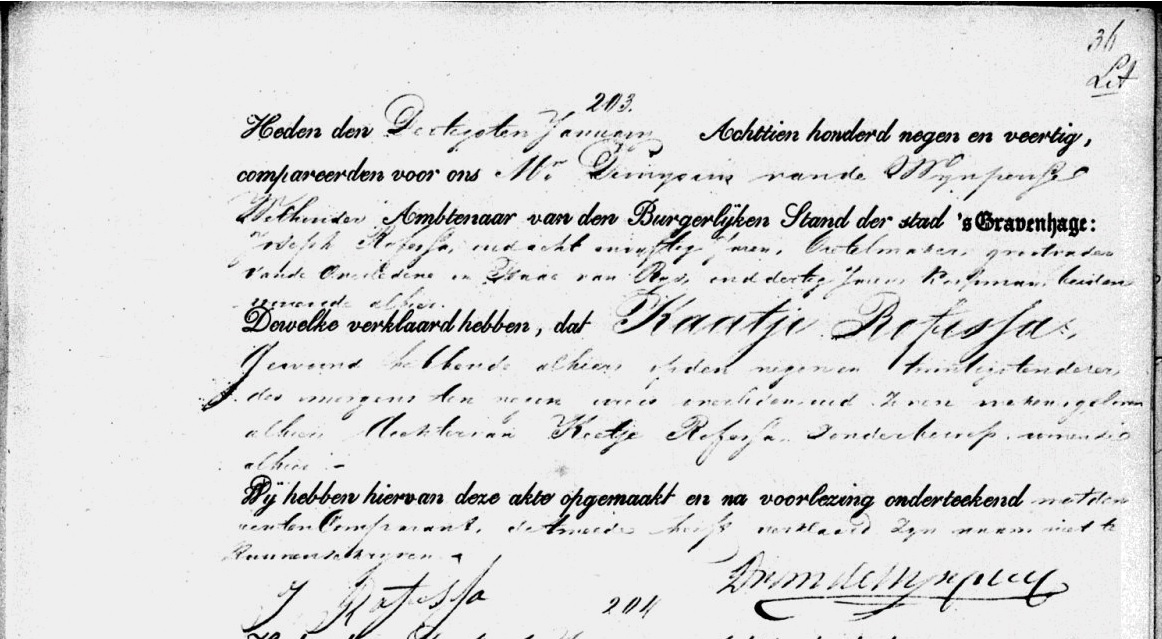 36
Let
203.
Heden den Dertigsten Januarij Achttien honderd negen en veertig,
compareerden voor ons Mr vande Wynpersse
Wethouder Ambtenaar van den Burgerlijken Stand der stad 's Gravenhage:
Joseph Rofessa, oud acht en vyftig Jaren, grootvader
vande Overledene en Isaac van Rys, oud dertig Jaren Koopman, beiden
wonende alhier.
Dewelke verklaard hebben, dat Kaatje Rofessa,
Gewoond hebbende alhier, opden negen en twintigsten dezer
des morgens ten negen ure overleden, oud zeven weken, geboren
alhier, dochter van Keetje Rofessa, zonder beroep, wonende
alhier. -
Wij hebben hiervan deze akte opgemaakt en na voorlezing onderteekend met den
eersten Comparant, de tweede heeft verklaard zyn naam niet te
kunnen schryven.
J Rofessa
204